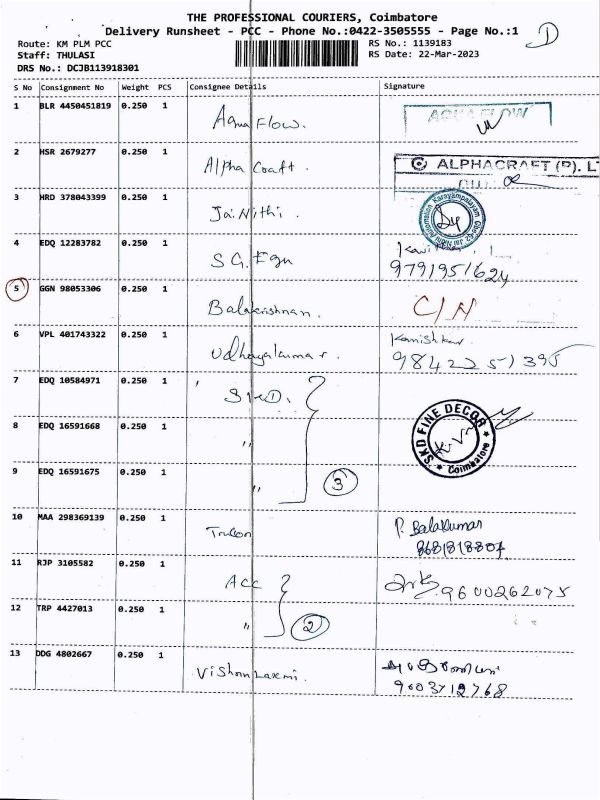 THE PROFESSIONAL COURIERS, Coimbatore
Delivery Runsheet - PCC - Phone No.:0422-3505555 - Page No.:1
Route: KM PLM PCC
Staff: THULASI
DRS No.: DCJB113918301
RS No.: 1139183
RS Date: 22-Mar-2023
S No Consignment No Weight PCS Consignee Details Signature
1 BLR 4450451819 0.250 1 Aqua Flow. AQUA FLOW
2 HSR 2679277 0.250 1 Alpha Craft. ALPHACRAFT (P). LT
3 HRD 378043399 0.250 1 Jai Nithi.
4 EDQ 12283782 0.250 1 S.G. Egn 9791951624
5 GGN 98053306 0.250 1 Balakrishnan. C/N
6 VPL 401743322 0.250 1 Udhayakumar. Kanishkar 9842251395
7 EDQ 10584971 0.250 1
8 EDQ 16591668 0.250 1 " SKD FINE DECOR Coimbatore
9 EDQ 16591675 0.250 1 " 3
10 MAA 298369139 0.250 1 P. Balakumar
8681818807
11 RJP 3105582 0.250 1 ACC 9600262075
12 TRP 4427013 0.250 1 " 2
13 DDG 4802667 0.250 1 Vishnu Laxmi.
9003712768